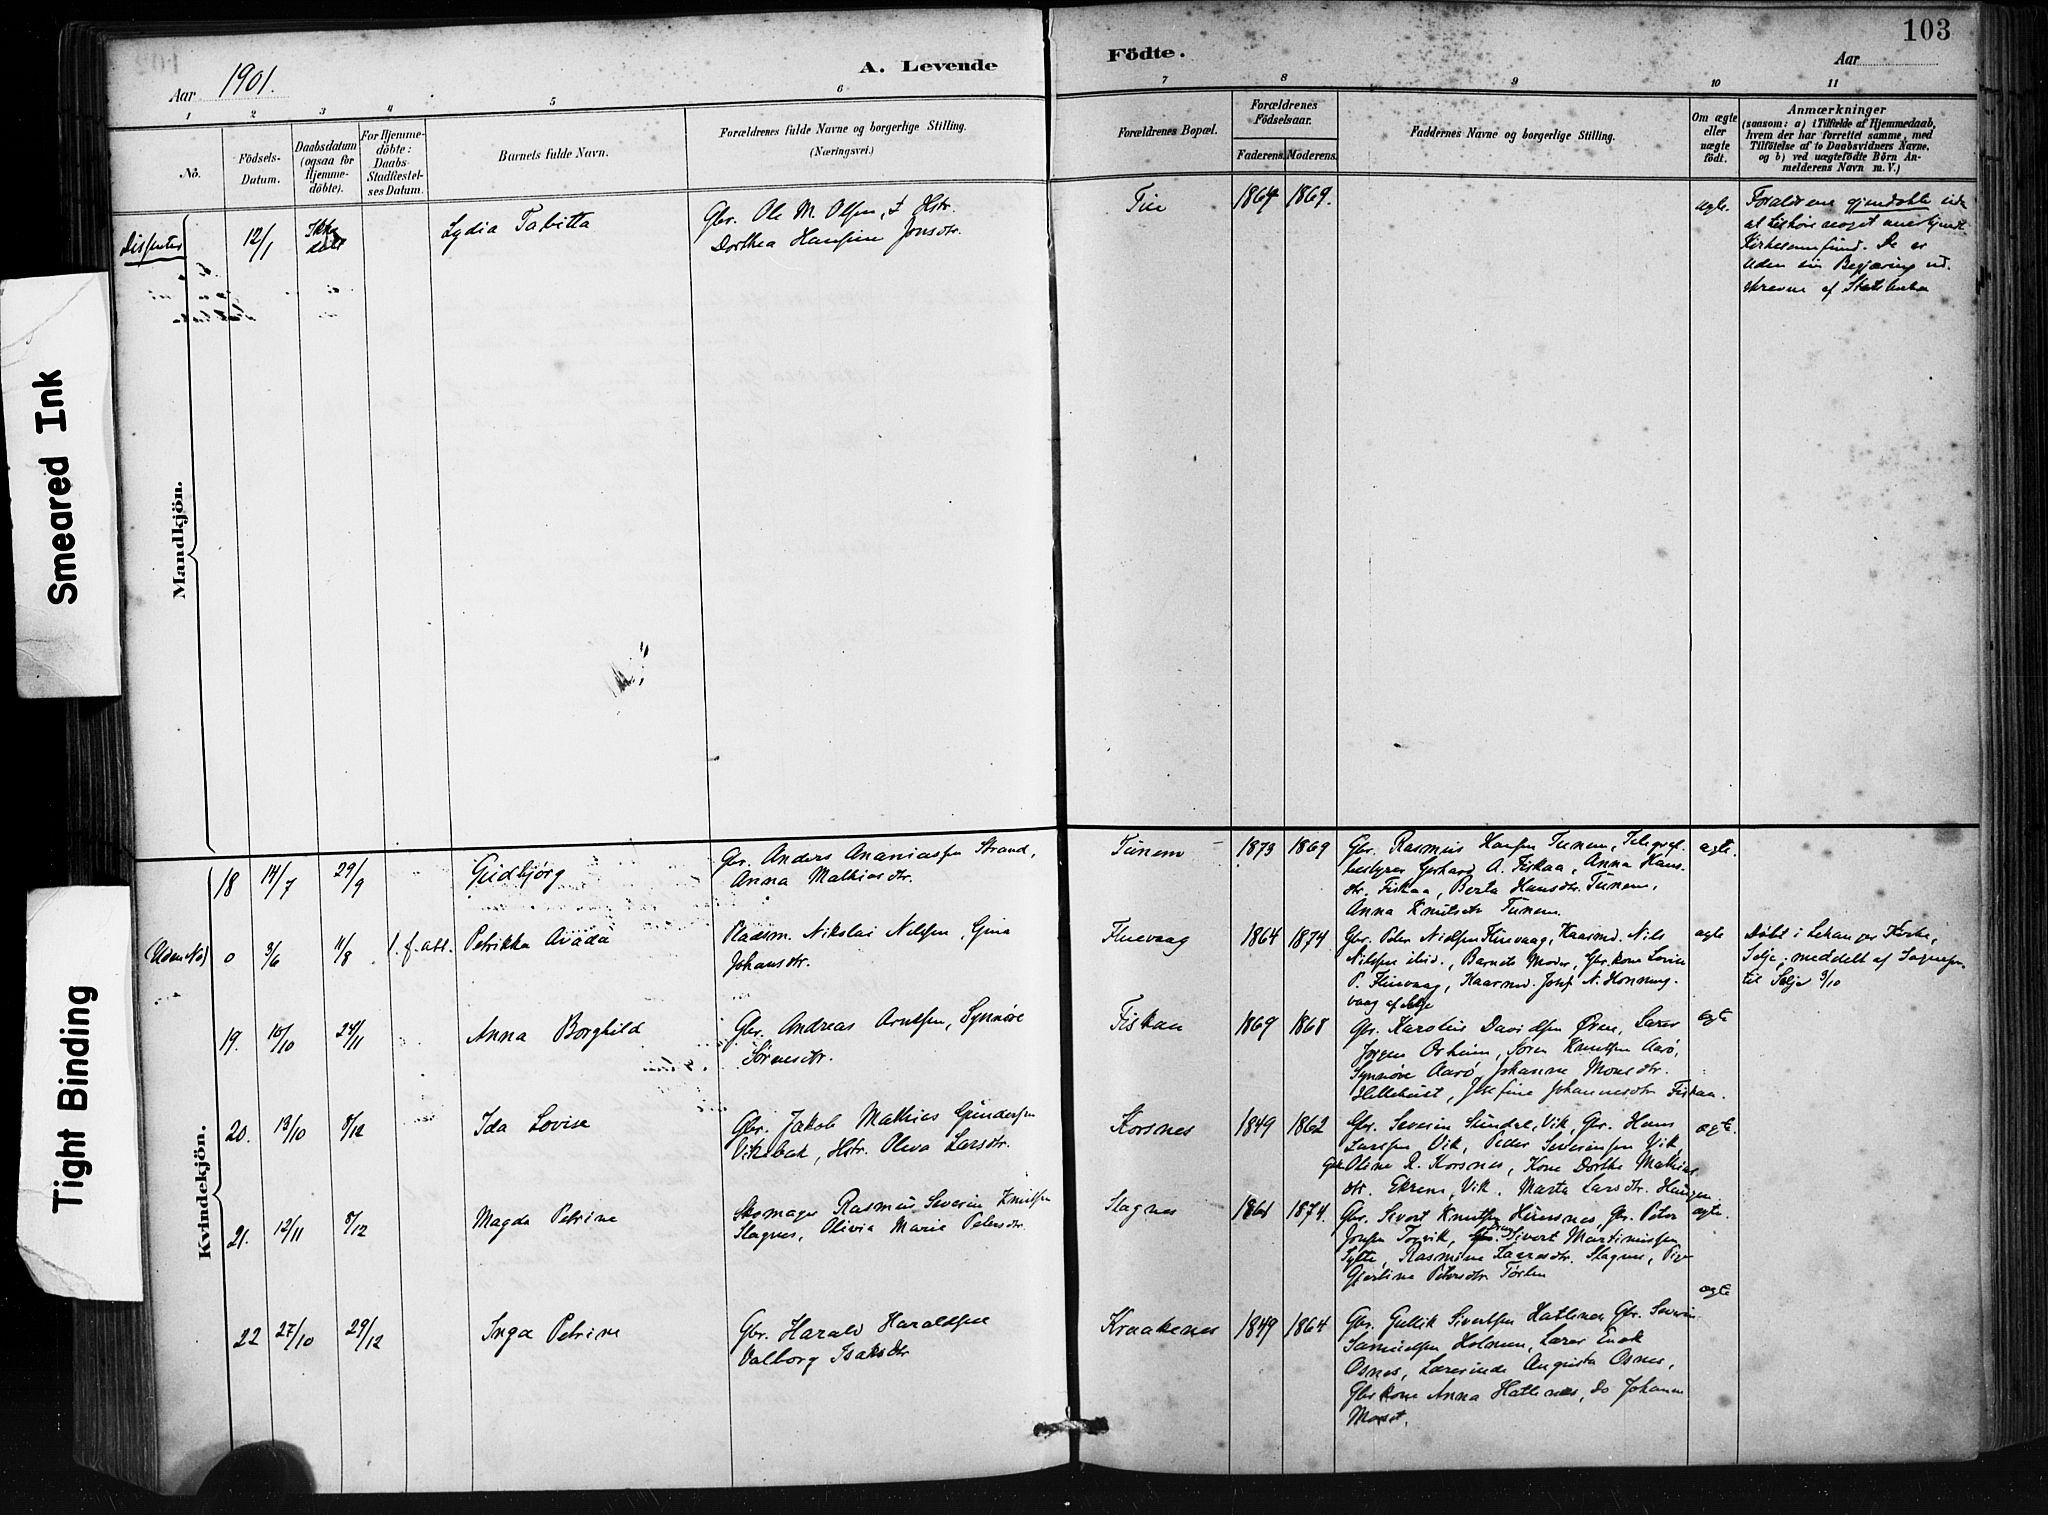 103
Aar 1901.
A. Levende
Födte.
Aar
1
2
3
4
5
6
7
8
9
10
11
No.
Födsels-
Datum.
Daabsdatum
(ogsaa for
Hjemme-
döbte).
For Hjemme-
döbte:
Daabs-
Stadfæstel-
ses Datum.
Barnets fulde Navn.
Forældrenes fulde Navne og borgerlige Stilling.
(Næringsvei.)
Forældrenes Bopæl.
Forældrenes
Födselsaar.
Faderens.
Moderens.
Faddernes Navne og borgerlige Stilling.
Om ægte
eller
uægte
födt.
Anmærkninger
(saasom: a) i Tilfælde af Hjemmedaab,
hvem der har forrettet samme, med
Tilföielse af to Daabsvidners Navne,
og b) ved uægtefödte Börn An-
melderens Navn m. V.)
Mandkjön.
Dissenter
12/1
Ikke
døbt
Lydia Tabitta
Gbr. Ole M. Olsen, Hstr.
Dorthea Hansine Jonsdtr.
1864
1869.
ægte.
Forældrene gjendøbte uden
at tilhøre noget anerkjendt
Kirkesamfund. De er
uden sin Begjæring ud-
skrevne af Statskirken
Smeared Ink
Tight Binding
Kvindekjön.
18
14/7
29/9
Gudbjørg
Gbr. Anders Ananiassen Strand,
Anna Mathiasdtr.
Tunem
1873
1869
Gbr. Rasmus Hansen Tunem, Telegraf-
bestyrer Gerhard A. Fiskaa, Anna Hans-
dtr. Fiskaa, Berta Hansdtr. Tunem,
Anna Knutsdtr Tunem.
ægte.
(Uden No)
0
3/6
11/8
Petrikka Avada
Pladsm. Nikolai Nilssen, Gina
Johansdtr.
Fluevaag
1864
1874
Gbr. Peter Nielsen Fluevaag, Kaarmd. Nils
Nilssen ibid., Barnets Moder, Gbr.kone Lovise
P. Fluevaag, Kaarmd. Josef N. Honnings-
vaag af Selje
ægte
Døbt i Kirke,
Selje, meddelt af Sognepr.
til Selje 3/10
19.
15/10
24/11
Anna Borghild
Gbr. Andreas Arntsen, Synnøve
Sørensdtr.
Fiskaa
1869
1868
Gbr. Karolius Davidsen Øren, Lærer
Jørgen Orheim, Søren Knutsen Aarø,
Synnøve Aarø, Johanne Monsdtr.
Hellehust, Josefine Johannesdtr Fiskaa.
ægte
20.
13/10
8/12
Ida Lovise
Gbr. Jakob Mathias Gundersen
Vikebak, Hstr. Oliva Larsdtr.
Korsnes
1849
1862
Gbr. Severin Vik, Gbr. Hans
Larssen Vik, Peder Severinsen Vik,
Oline R. Korsnes, Kone Dorthe Mathias
dtr. Ekrem, Vik. Marta Larsdtr. Haugen
ægte.
21.
12/11
8/12
Magda Petrine
Skomager Rasmus Severin Knutsen
Slagnes, Olivia Marie Petersdtr.
Slagnes
1861
1874.
Gbr. Sivert Knutsen Husnes, Gbr. Peter
Jonsen Torvik, Sivert Martinussen
Sytte, Rasmine Slagnes, Pige
Gjertine Petersdtr
ægte.
22
27/10
29/12
Inga Petrine
Gbr. Harald Haraldsen
Valborg Isaksdtr
Kraakenes
1849
1864
Gbr. Gullik Sivertsen Hatlenes, Gbr. Severin
Samuelsen Holmen, Lærer Enok
Osnes, Lærerinde Augusta Osnes,
Gbrkone Anna Hatlenes, do Johanne
ægte